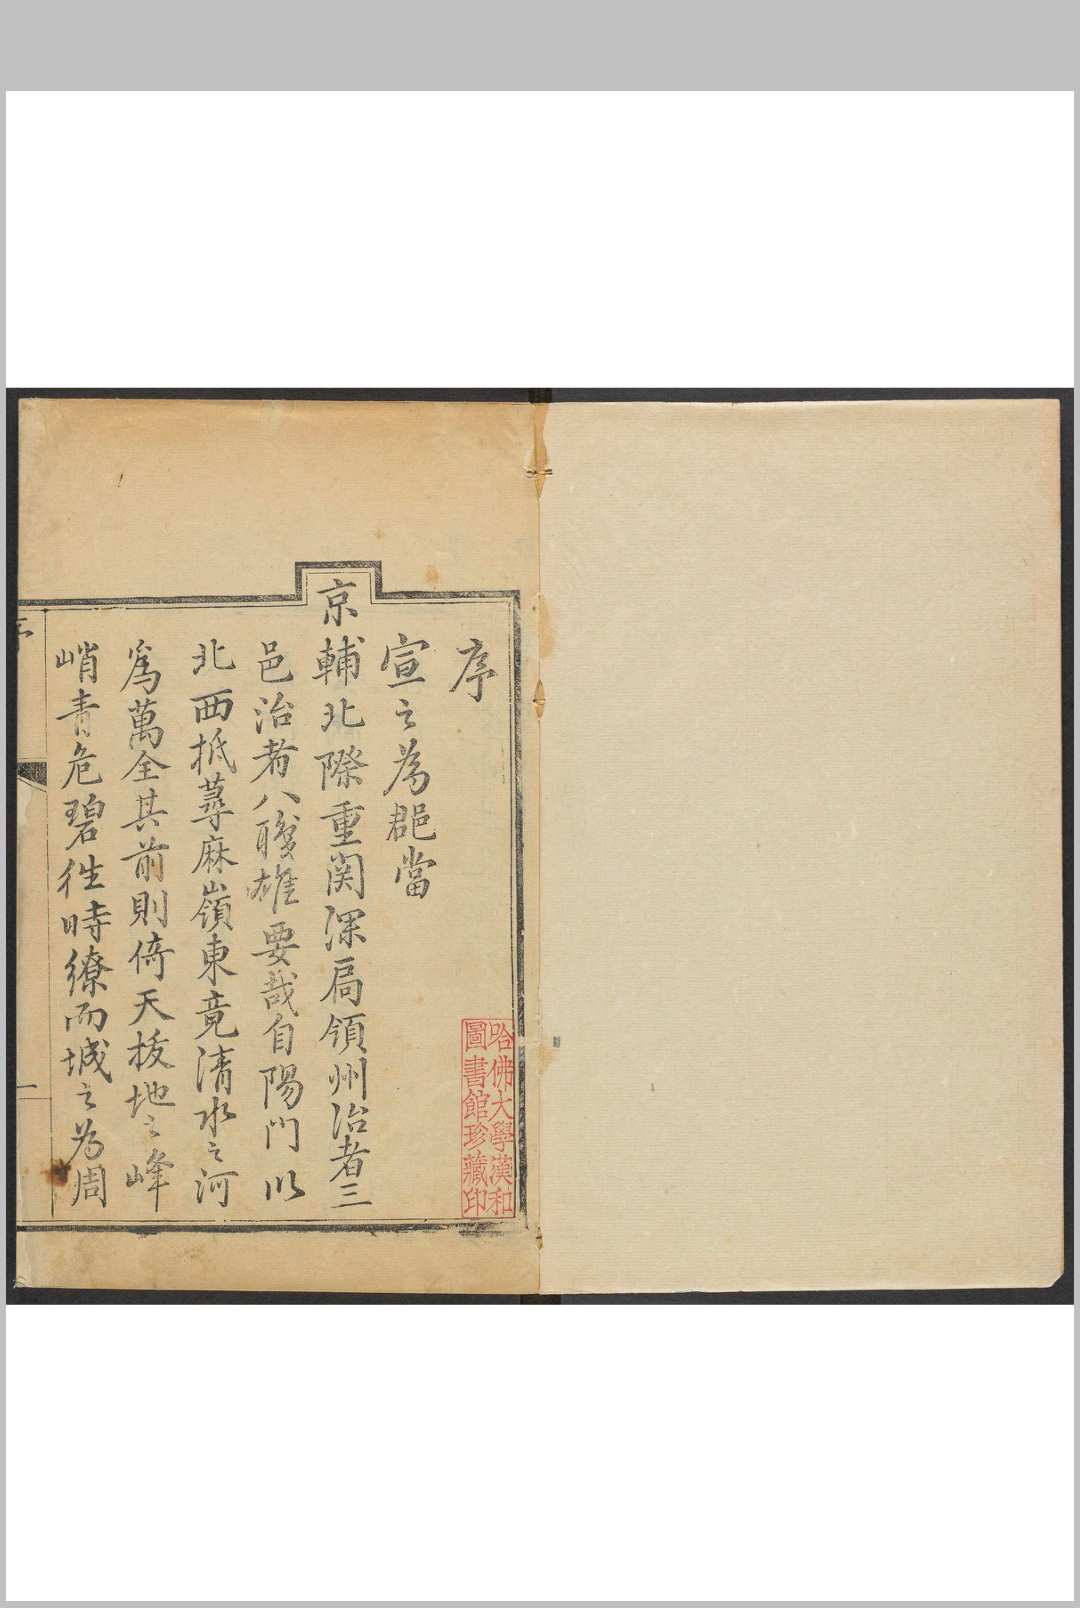 序
宣之為郡當
京輔北際重関深局領州治者三
邑治者八職雄要哉自陽門以
北西抵蕁麻嶺東竟清水之河
為萬全其前則倚天拔地之峰
峭青危碧徃時繚而城之為周
序
一
哈佛大學漢和
圖書館珍藏印